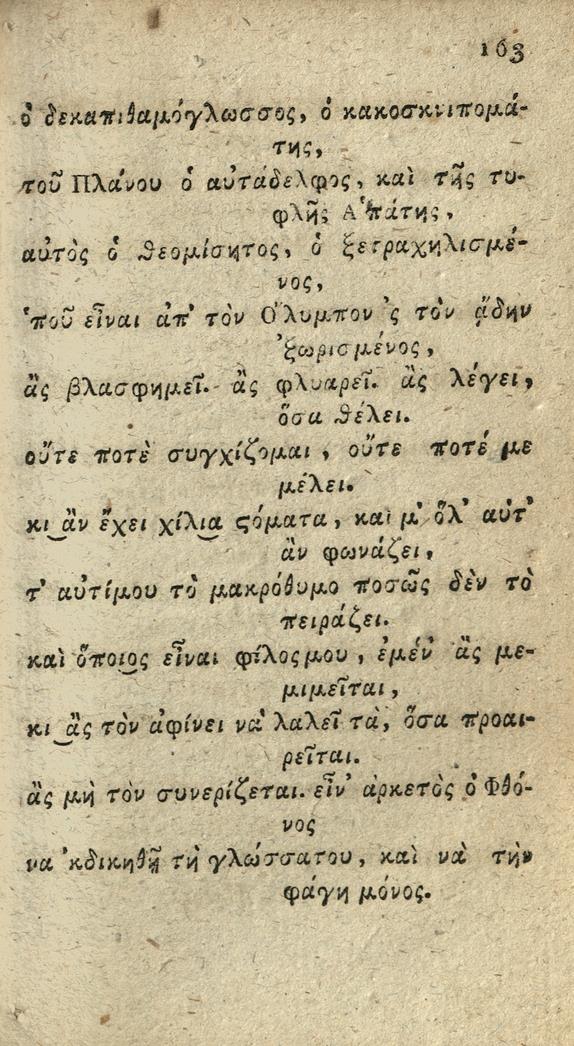 163
ὁ δεκαπιθαμόγλωσσος, ὁ κακοσκνιπομά-
της,
τοῦ Πλάνου ὁ αὐτάδελφος, καὶ τῆς τυ-
φλῆς Ἀπάτης,
αὐτὸς ὁ θεομίσητος, ὁ ξετραχηλισμέ-
νος,
'ποῦ εἶναι ἀπ' τὸν Ὄλυμπον 'ς τὸν ᾅδην
'ξωρισμένος,
ἂς βλασφημεῖ. ἂς φλυαρεῖ. ἂς λέγει,
ὅσα θέλει.
οὔτε ποτὲ συγχίζομαι, οὔτε ποτέ με
μέλει.
κι‿ἂν ἔχει χίλια ϛόματα, καὶ μ' ὅλ' αὐτ'
ἂν φωνάζει,
τ' αὐτίμου τὸ μακρόθυμο ποσῶς δὲν τὸ
πειράζει.
καὶ ὅποιος εἶναι φίλοςμου, ἐμέν' ἂς με-
μιμεῖται,
κι‿ἂς τὸν ἀφίνει νὰ λαλεῖ τὰ, ὅσα προαι-
ρεῖται.
ἂς μὴ τὸν συνερίζεται. εἶν' ἀρκετὸς ὁ Φθό-
νος
να 'κδικηθῇ τὴ γλώσσατου, καὶ νὰ τὴν
φάγη μόνος.